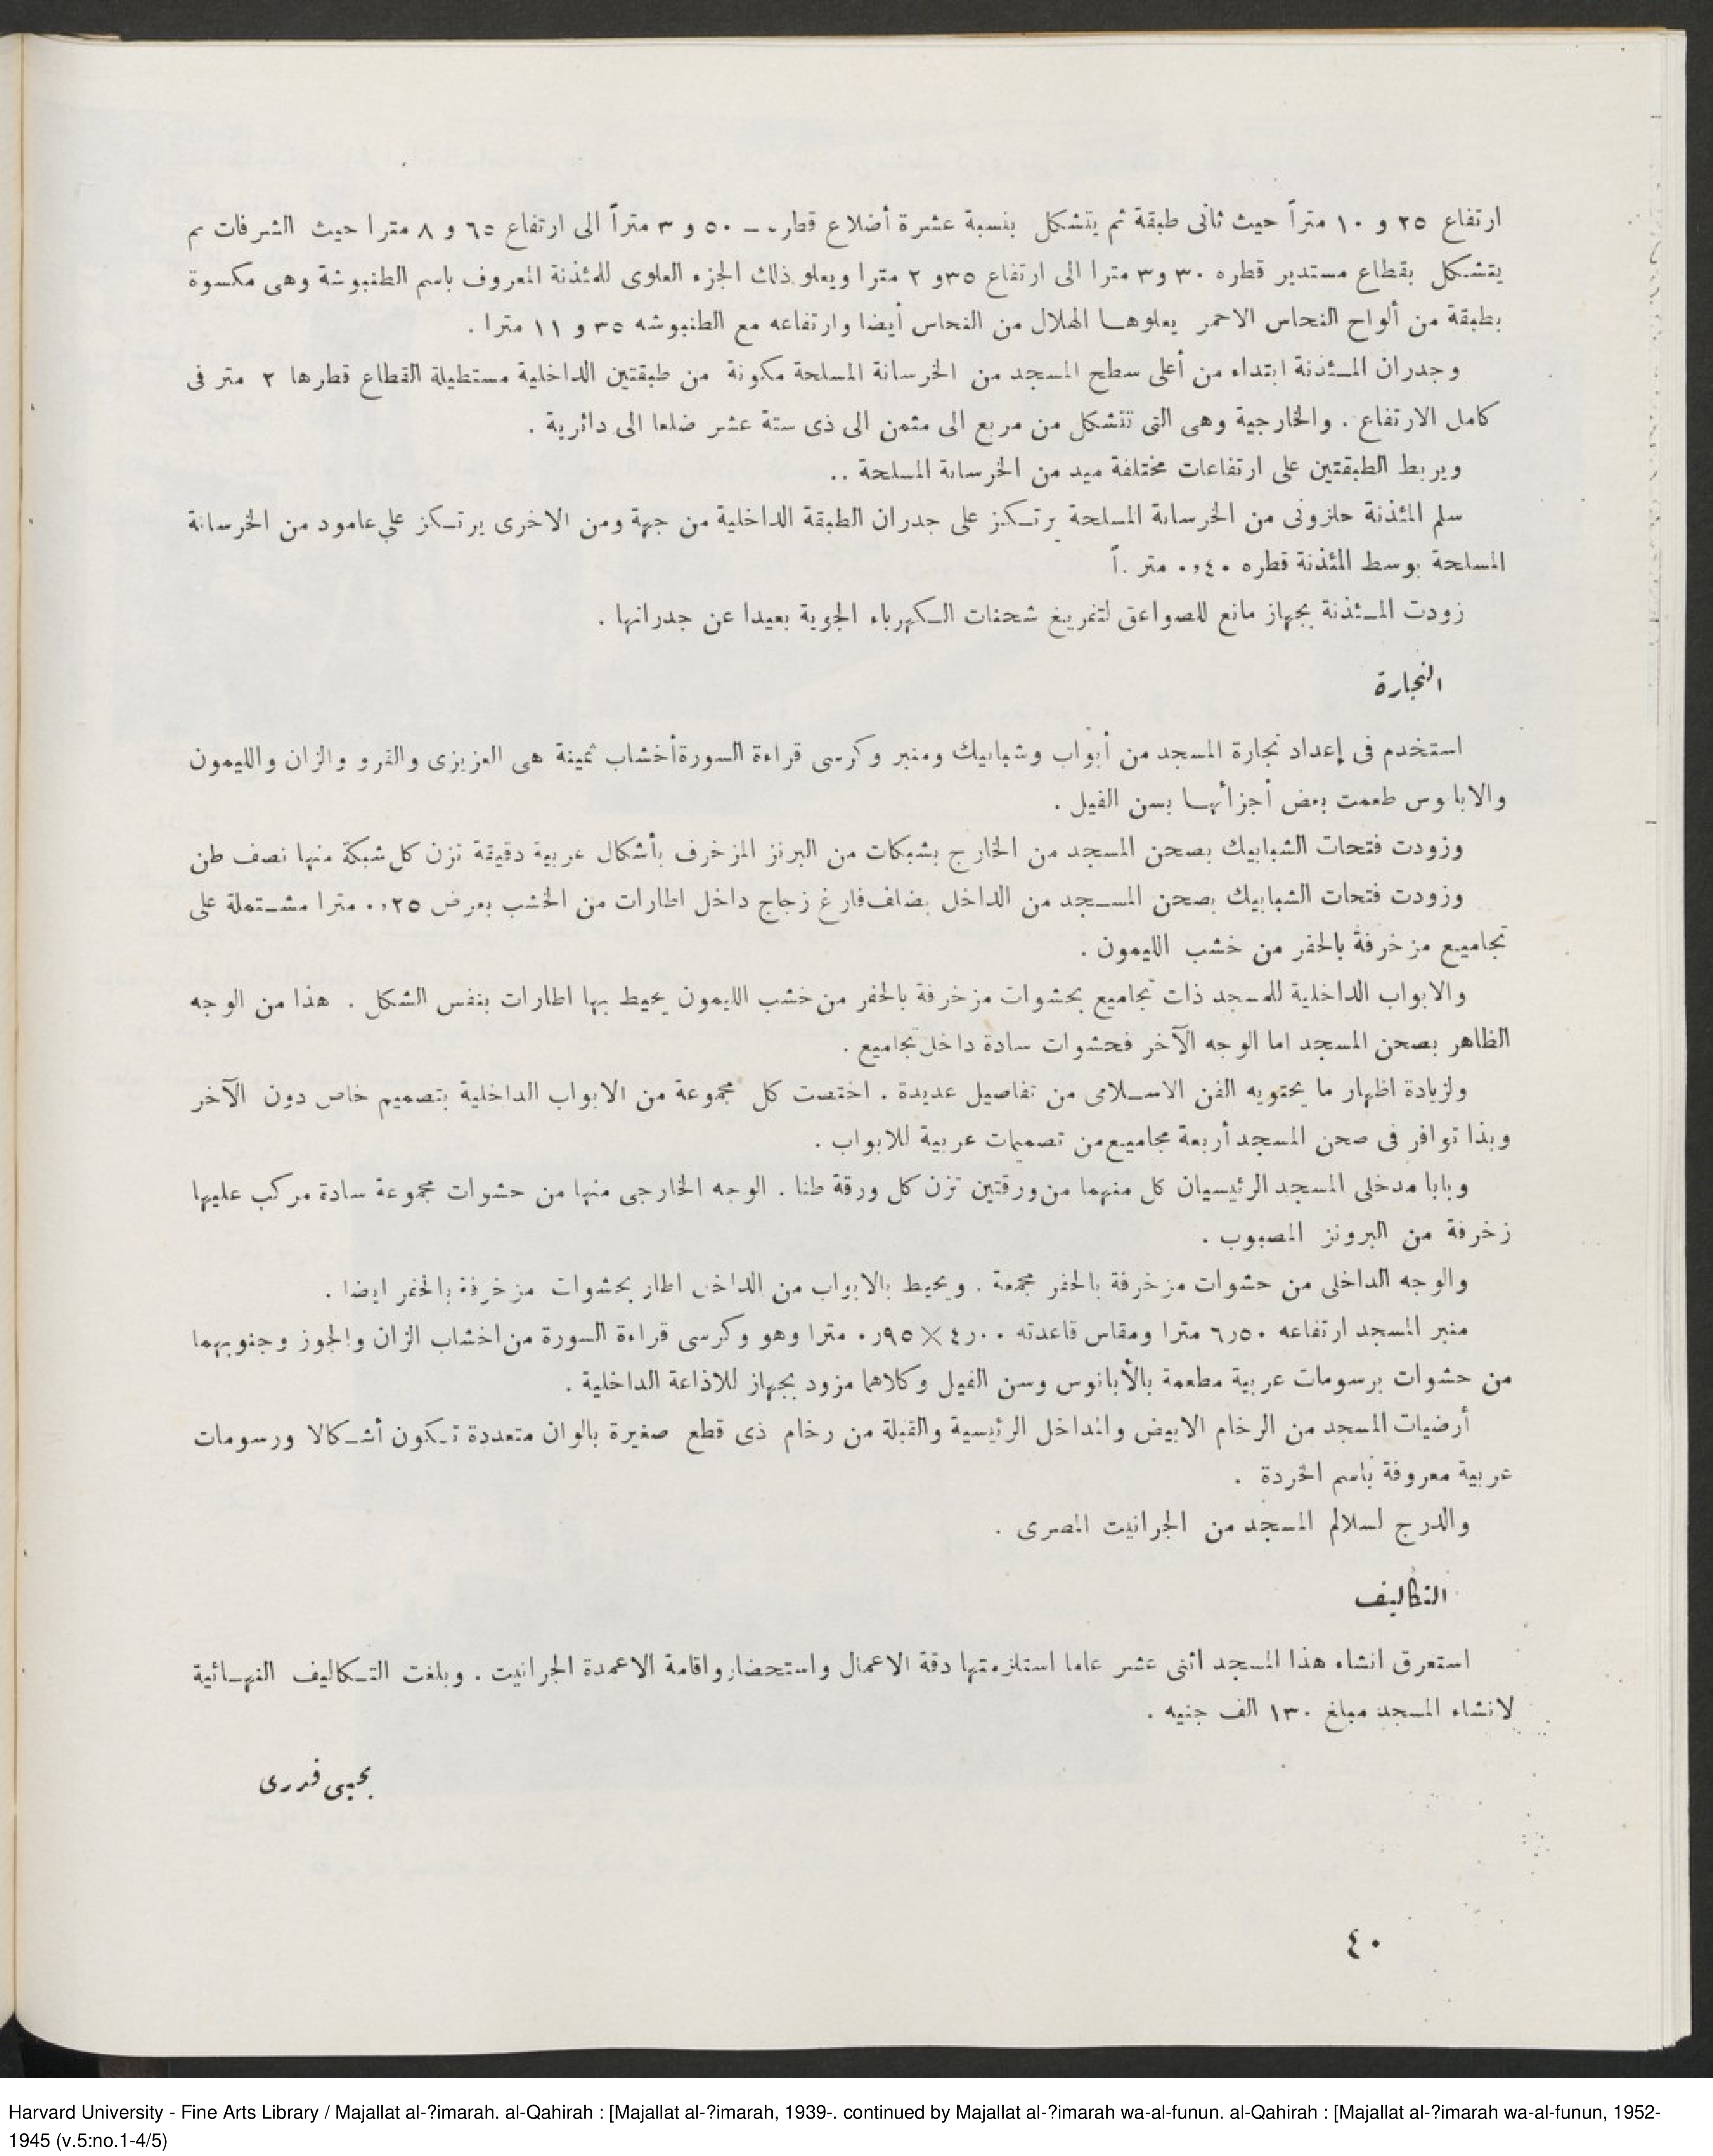 ارتفاع ٢٥ و ١٠ متراً حيث ثانى طبقة ثم يتشكل بنسبة عشرة أضلاع قطر ـ ـ ٥٠ و ٣ متراً الى ارتفاع ٦٥ و ٨ مترا حيث الشرفات ثم
يتشكل بقطاع مستدير قطره ٣٠ و٣ مترا الى ارتفاع ٣٥و ٢ مترا ويعلو ذلك الجزء العلوى للمئذنة المعروف باسم الطنبوشة وهى مكسوة
بطبقة من ألواح النحاس الاحمر يعلوها الهلال من النحاس أيضا وارتفاعه مع الطنبوشه ٣٥ و ١١ مترا .
وجدران المئذنة ابتداء من أعلى سطح المسجد من الخرسانة المسلحة مكونة من طبقتين الداخلية مستطيلة القطاع قطرها ٢ متر فى
كامل الارتفاع . والخارجية وهى التى تتشكل من مربع الى مثمن الى ذى ستة عشر ضلعا الى دائرية .
ويربط الطبقتين على ارتفاعات مختلفة ميد من الخرسانة المسلحة ..
سلم المئذنة حلزونى من الخرسانة المسلحة يرتكز على جدران الطبقة الداخلية من جهة ومن الاخرى يرتكز علي عامود من الخرسانة
المسلحة بوسط المئذنة قطره ٠,٤٠ متر .اً
زودت المئذنة بجهاز مانع للصواعق لتفريغ شحنات الكهرباء الجوية بعيدا عن جدرانها .
النجارة
استخدم فى إعداد نجارة المسجد من أبواب وشبابيك ومنبر وكرسى قراءة السورة أخشاب ثمينة هى العزيزى والقرو والزان والليمون
والابانوس طعمت بعض أجزائها بسن الفيل .
وزودت فتحات الشبابيك بصحن المسجد من الخارج بشبكات من البرنز المزخرف بأشكال عربية دقيقة تزن كل شبكة منها نصف طن
وزودت فتحات الشبابيك بصحن المسجد من الداخل بضلف فارغ زجاج داخل اطارات من الخشب بعرض ٠,٢٥ مترا مشتملة على
تجاميع مزخرفة بالحفر من خشب الليمون .
والابواب الداخلية للمسجد ذات تجاميع بحشوات مزخرفة بالحفر من خشب الليمون يحيط بها اطارات بنفس الشكل . هذا من الوجه
الظاهر بصحن المسجد اما الوجه الآخر فحشوات سادة داخل تجاميع .
ولزيادة اظهار ما يحتويه الفن الاسلامى من تفاصيل عديدة . اختصت كل مجموعة من الابواب الداخلية بتصميم خاص دون الآخر
وبذا توافر فى صحن المسجد أربعة مجاميع من تصميمات عربية للابواب .
وبابا مدخلى المسجد الرئيسيان كل منهما من ورقتين تزن كل ورقة طنا . الوجه الخارجى منها من حشوات مجموعة سادة مركب عليها
زخرفة من البرونز المصبوب .
والوجه الداخلى من حشوات مزخرفة بالحفر مجمعة . ويحيط بالابواب من الداخل اطار بحشوات مزخرفة بالحفر ايضا .
منبر المسجد ارتفاعه ٦٫٥٠ مترا ومقاس قاعدته ٤٫٠٠ × ٠٫٩٥ مترا وهو وكرسى قراءة السورة من اخشاب الزان والجوز وجنوبهما
من حشوات برسومات عربية مطعمة بالأبانوس وسن الفيل وكلاهما مزود بجهاز للاذاعة الداخلية .
أرضيات المسجد من الرخام الابيض والمداخل الرئيسية والقبلة من رخام ذى قطع صغيرة بالوان متعددة تكون أشكالا ورسومات
عربية معروفة باسم الخردة .
والدرج لسلالم المسجد من الجرانيت المصرى .
التكاليف
استعرق انشاء هذا المسجد اثنى عشر عاما استلزمتها دقة الاعمال واستحضار واقامة الاعمدة الجرانيت . وبلغت التكاليف النهائية
لانشاء المسجد مبلغ ١٣٠ الف جنيه .
يحيى قدرى
٤٠
Harvard University - Fine Arts Library / Majallat al-?imarah. al-Qahirah : [Majallat al-?imarah, 1939-. continued by Majallat al-?imarah wa-al-funun. al-Qahirah : [Majallat al-?imarah wa-al-funun, 1952-
1945 (v.5:no.1-4/5)